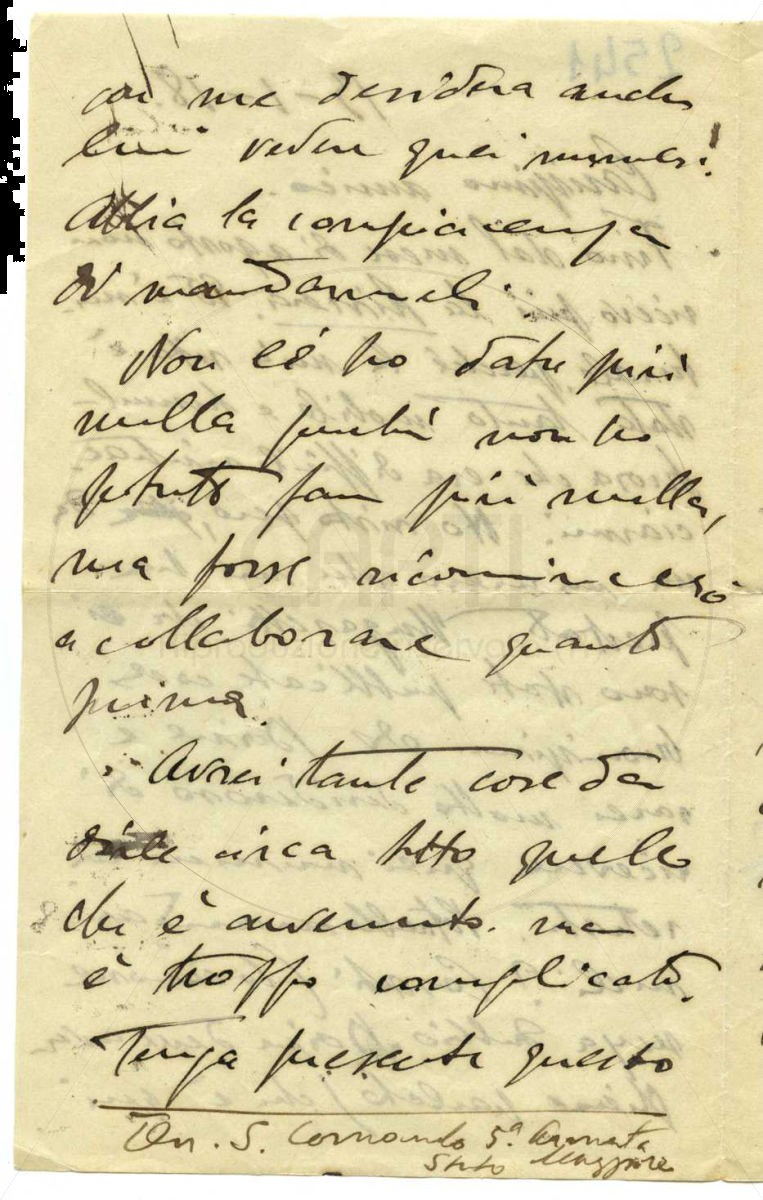 con me desidera anche
lui veder quei numeri!
Abbia la compiacenza
di mandarmeli.
Non Le ho dato più
nulla perché non ho
potuto fare più nulla,
ma forse ricomincerò
a collaborare quanto
prima.
Avrei tante cose da
dirle circa tutto quello
che è avvenuto. ma
è troppo complicato.
Tenga presente questo
On. S. Comando 5ª Armata
Stato Maggiore